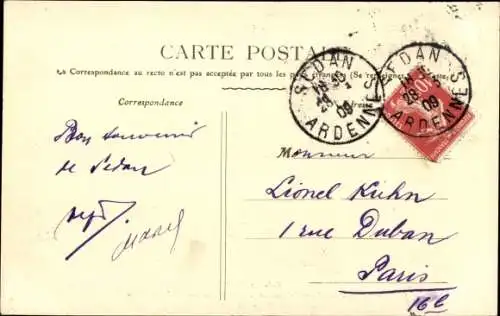 CARTE POSTALE
La Correspondance au recto n'est pas acceptée par tous les pays étrangers (Se renseigner à la Poste)
Correspondance
Adresse
SEDAN
28
09
ARDENNES
SEDAN
28
09
ARDENNES
10
Bon souvenir
de Sedan
Monsieur
Lionel Kuhn
1 rue Duban
Paris
16e